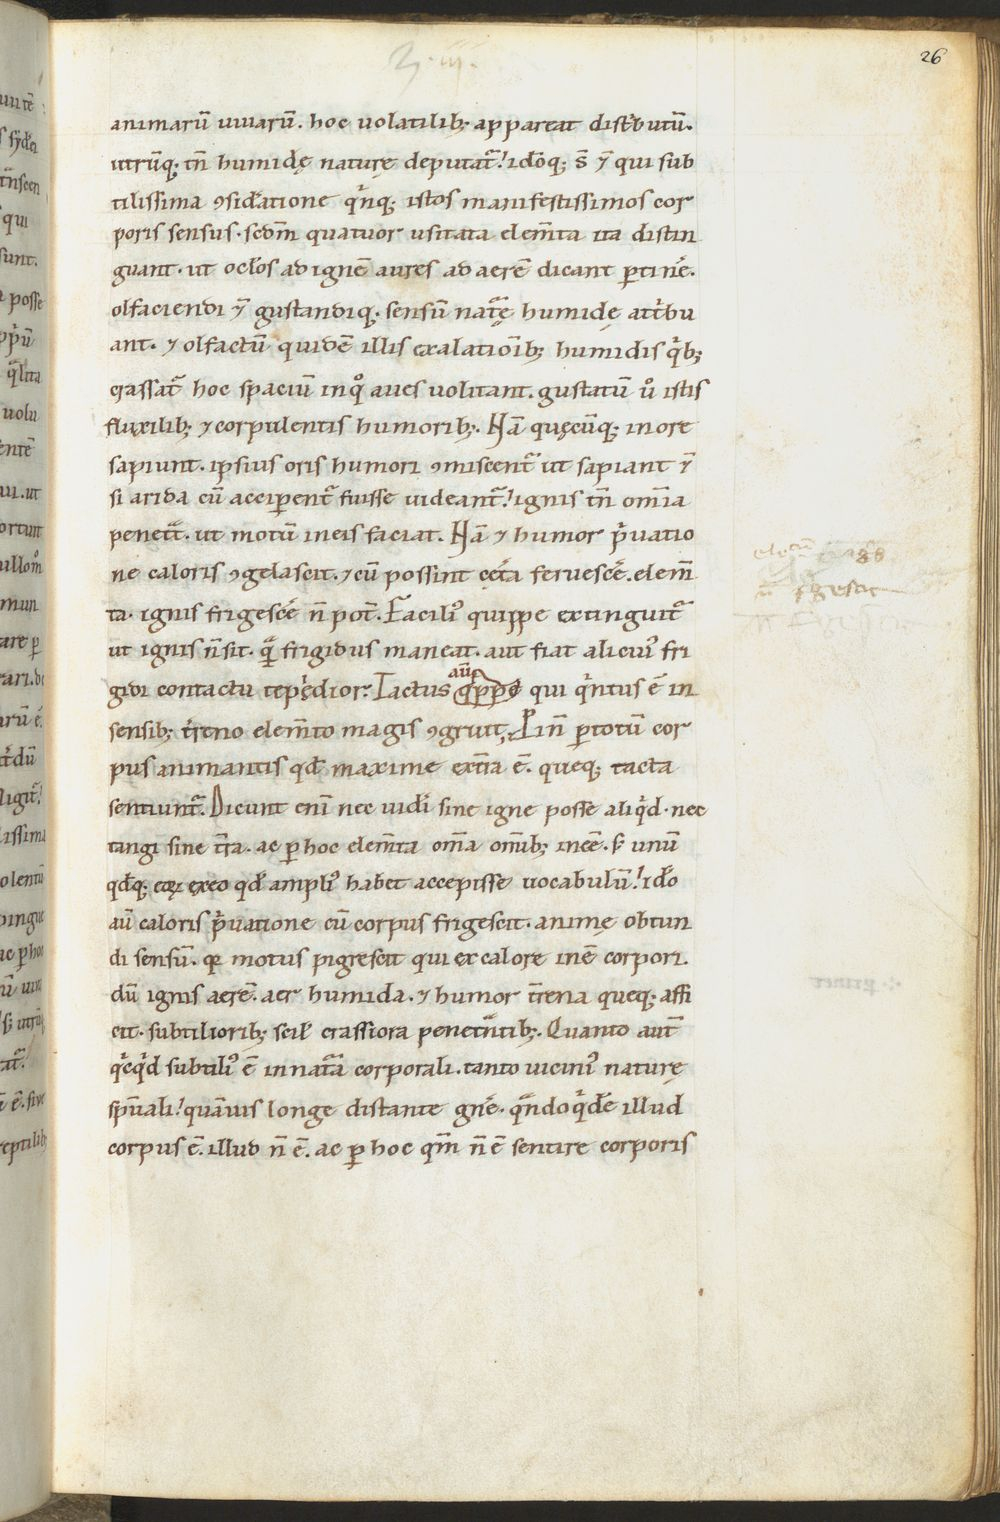 26
animarū uiuarū. hoc uolatilib; appareat distͥbutū.
utrūq; tn̄ humidę naturę deputat᷑! idōq; s̄ ⁊ qui sub
tilissima ꝯsid̄atione qͥnq; istos manifestissimos cor
poris sensus. sedm̄ quatuor usitata elem̄ta ita distin
guant. ut oclōs ad ignē aures ad aerē dicant ꝑtinē.
olfaciendi ⁊ gustandiq; sensū natᷓę humidę attͥbu
ant. ⁊ olfactū quidē illis exalationīb; humidis qͥb;
crassat᷑ hoc spaciū inqͦ aues uolitant. gustatū uͦ istis
fluxilib; ⁊ corpulentis humorib;. Nā quęcūq; in ore
sapiunt. ipsius oris humori ꝯmiscent᷑ ut sapiant ⁊
si arida cū acciperent᷑ fuisse uideant᷑! ignis tn̄ omīa
penetᷓt. ut motū ineis faciat. Nā ⁊ humor pͥuatio
ne caloris ꝯgelascit. ⁊ cū possint cet̄a feruescē. elem̄
ta. ignis frigescē n̄ pot̄. Faciliꝰ quippe extinguit᷑
ut ignis n̄ sit. qᷓ frigidus maneat. aut fiat alicuiꝰ fri
gidi contactu tepidior. Tactus aū qͥppe qui qͥntus ē in
sensib; t̄reno elem̄to magis ꝯgruit. Pin̄ ꝑtotū cor
pus animantis qd̄ maxime ext̄ra ē. queq; tacta
sentiunt᷑. Dicunt enī nec uidi̇ sine igne posse aliqͥd. nec
tangi sine t̄ra. ac ꝑ hoc elem̄ta om̄a om̄ib; ineē. s; unū
qd̄q; exeo qd̄ ampliꝰ habet accepisse uocabulū! idō
aū caloris pͥuatione cū corpus frigescit. animę obtun
di sensū. qꝛ motus pigrescit qui ex calore inē corpori.
dū ignis aerē. aer humida. ⁊ humor t̄rena queq; affi
cit. subtiliorib; scil̄ crassiora penetᷓntib;. Quanto aut̄
qͥcqͥd subtiliꝰ ē in natᷓa corporali. tanto uiciniꝰ naturę
spūali! quāuis longe distante gn̄e. qᷓndoqͥdē illud
corpus ē. illud n̄ ē. ac ꝑ hoc qm̄ n̄ ē sentire corporis